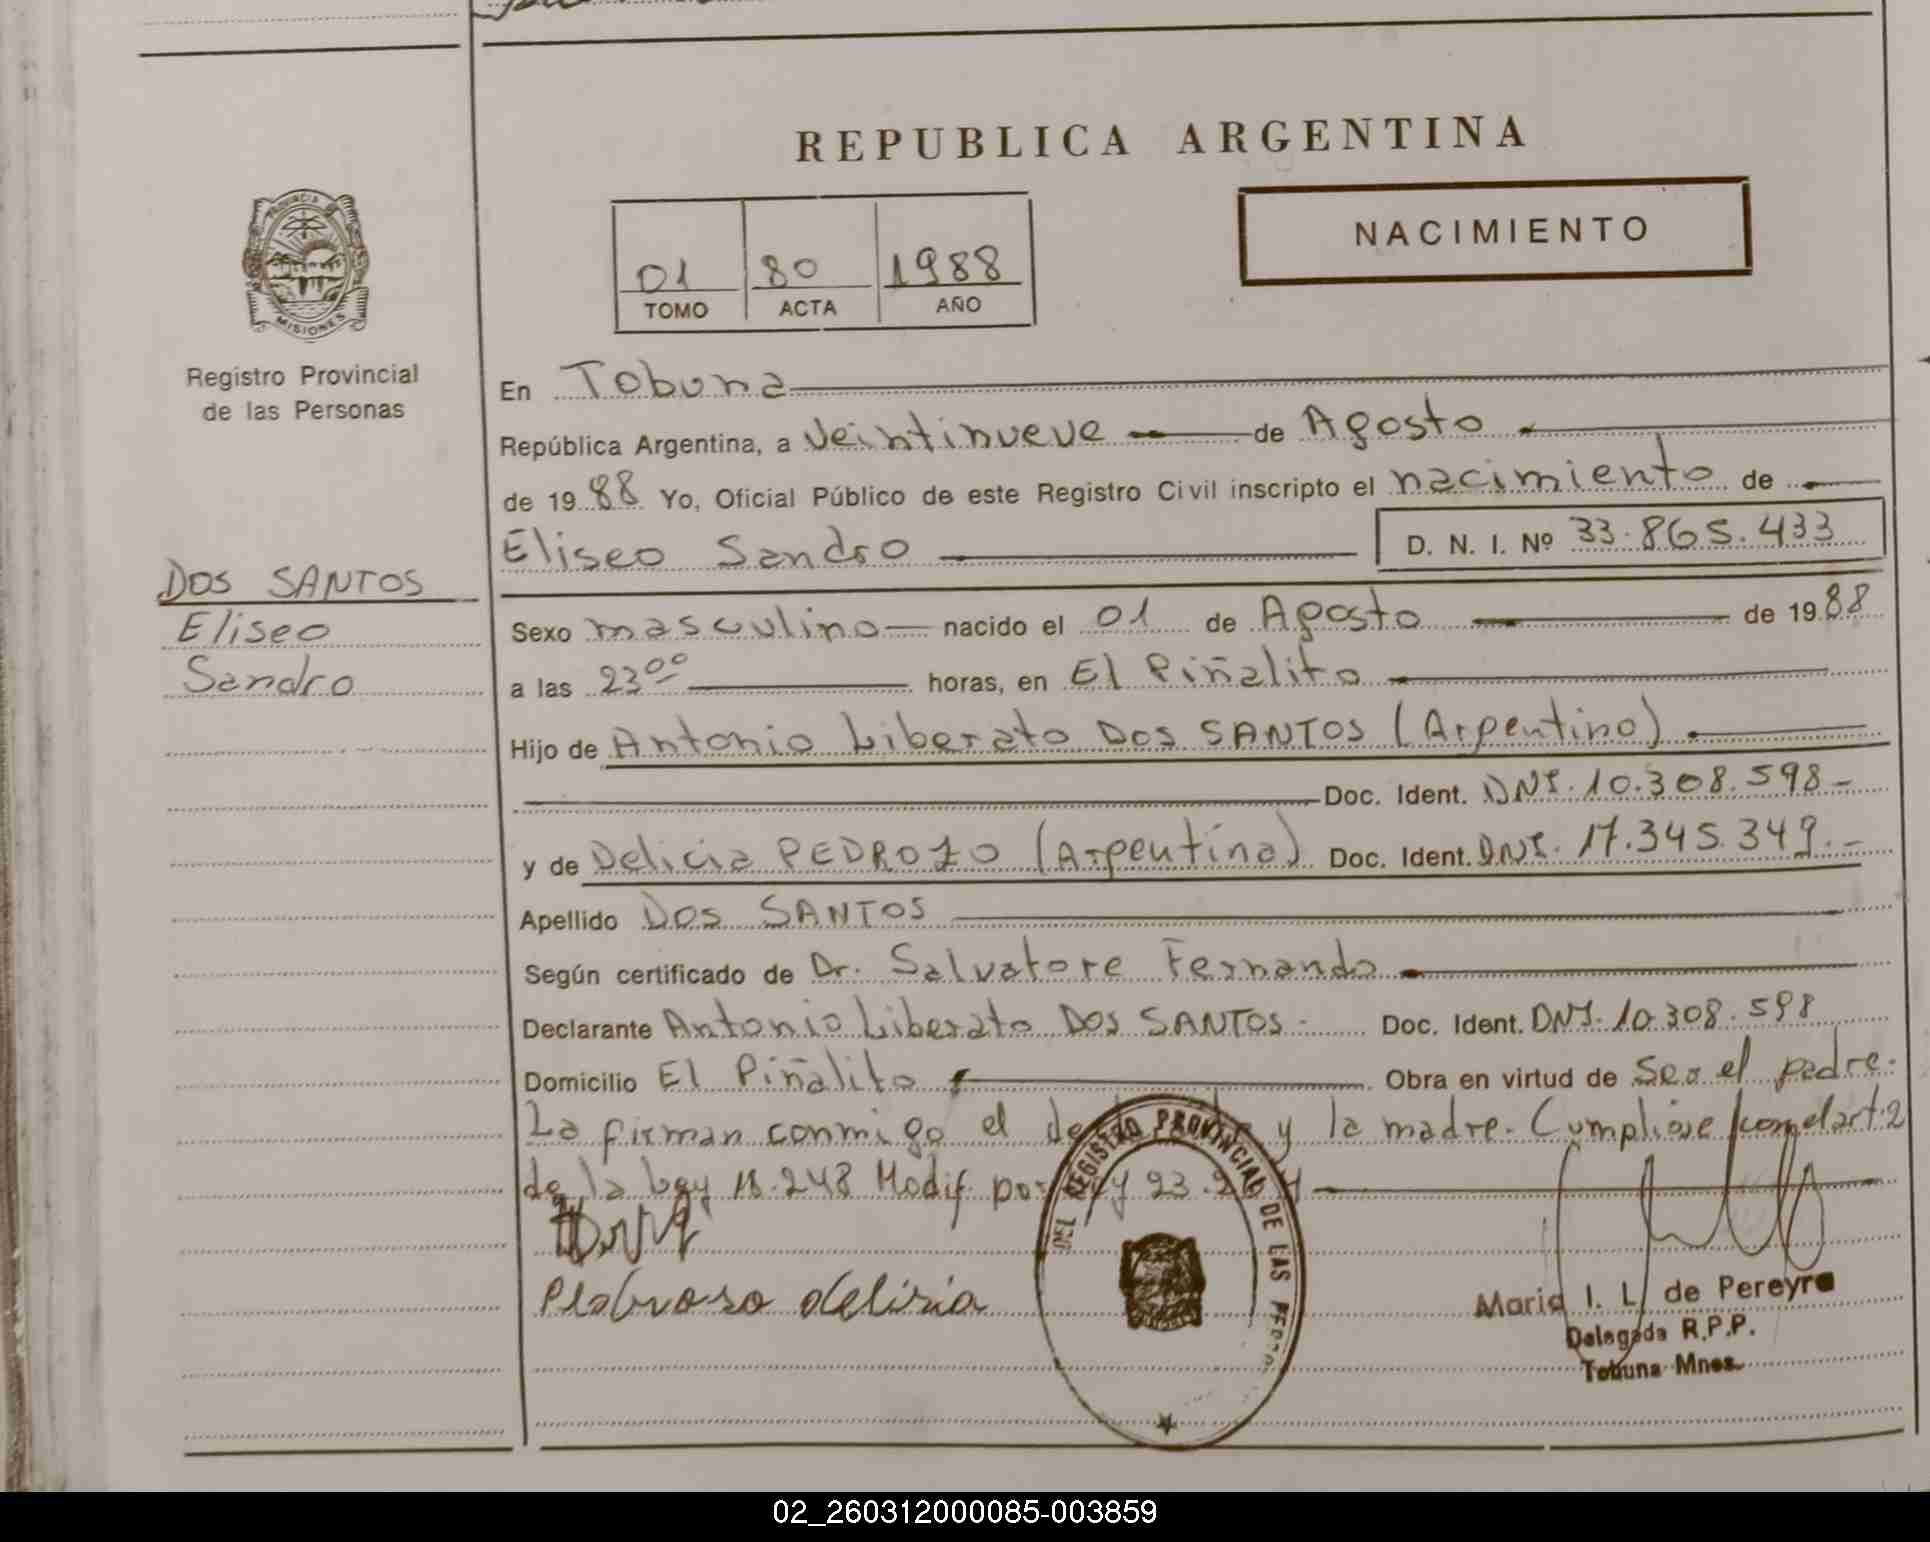 REPUBLICA ARGENTINA
NACIMIENTO
01 80 1988
TOMO ACTA AÑO
PROVINCIA DE
MISIONES
Registro Provincial
de las Personas
En Tobuna
República Argentina, a veintinueve de Agosto
de 19 88 Yo, Oficial Público de este Registro Civil inscripto el nacimiento de
Eliseo Sandro D. N. I. Nº 33.865.433
DOS SANTOS
Eliseo
Sandro
Sexo masculino nacido el 01 de Agosto de 19 88
a las 23⁰⁰ horas, en El Piñalito
Hijo de Antonio Liberato DOS SANTOS (Argentino)
Doc. Ident. DNI. 10.308.598-
y de Delicia PEDROZO (Argentina) Doc. Ident. DNI. 17.345.349.-
Apellido DOS SANTOS
Según certificado de Dr. Salvatore Fernando
Declarante Antonio Liberato DOS SANTOS- Doc. Ident. DNI. 10.308.598
Domicilio El Piñalito Obra en virtud de ser el padre.
La firman conmigo el y la madre. Cumpliose con el art. 2
de la Ley 18.248 Modif. por Ley 23.
DEL REGISTRO PROVINCIAL DE LAS
delisia
Maria I. L. de Pereyra
Delegada R.P.P.
Tobuna Mnes.
02_260312000085-003859